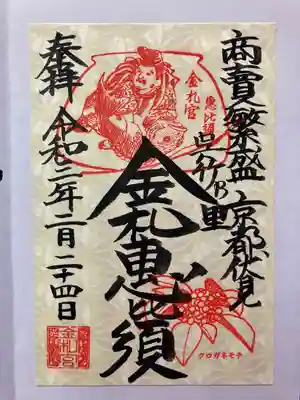 商賣繁盛 京都伏見
呉竹の里
金札恵比須
奉拝 令和三年二月二十四日
恵比須
金札宮
クロガネモチ
金札宮